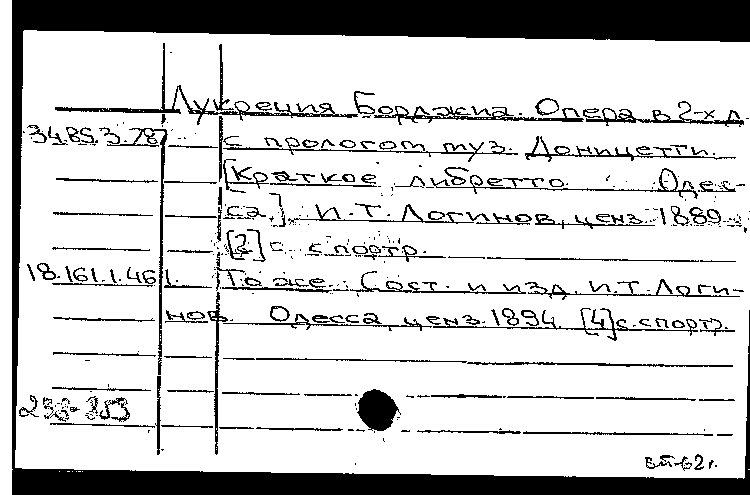 Лукреция Борджиа. Опера в 2-х д.
34.85.3.787 с прологом, муз. Доницетти.
[Краткое либретто. Одес-
са,] И.Т. Логинов, ценз. 1889.
[2] с. с портр.
18.161.1.461. То же. Сост. и изд. И.Т. Логи-
нов. Одесса, ценз. 1894. [4] с. с портр.
253
62 г.